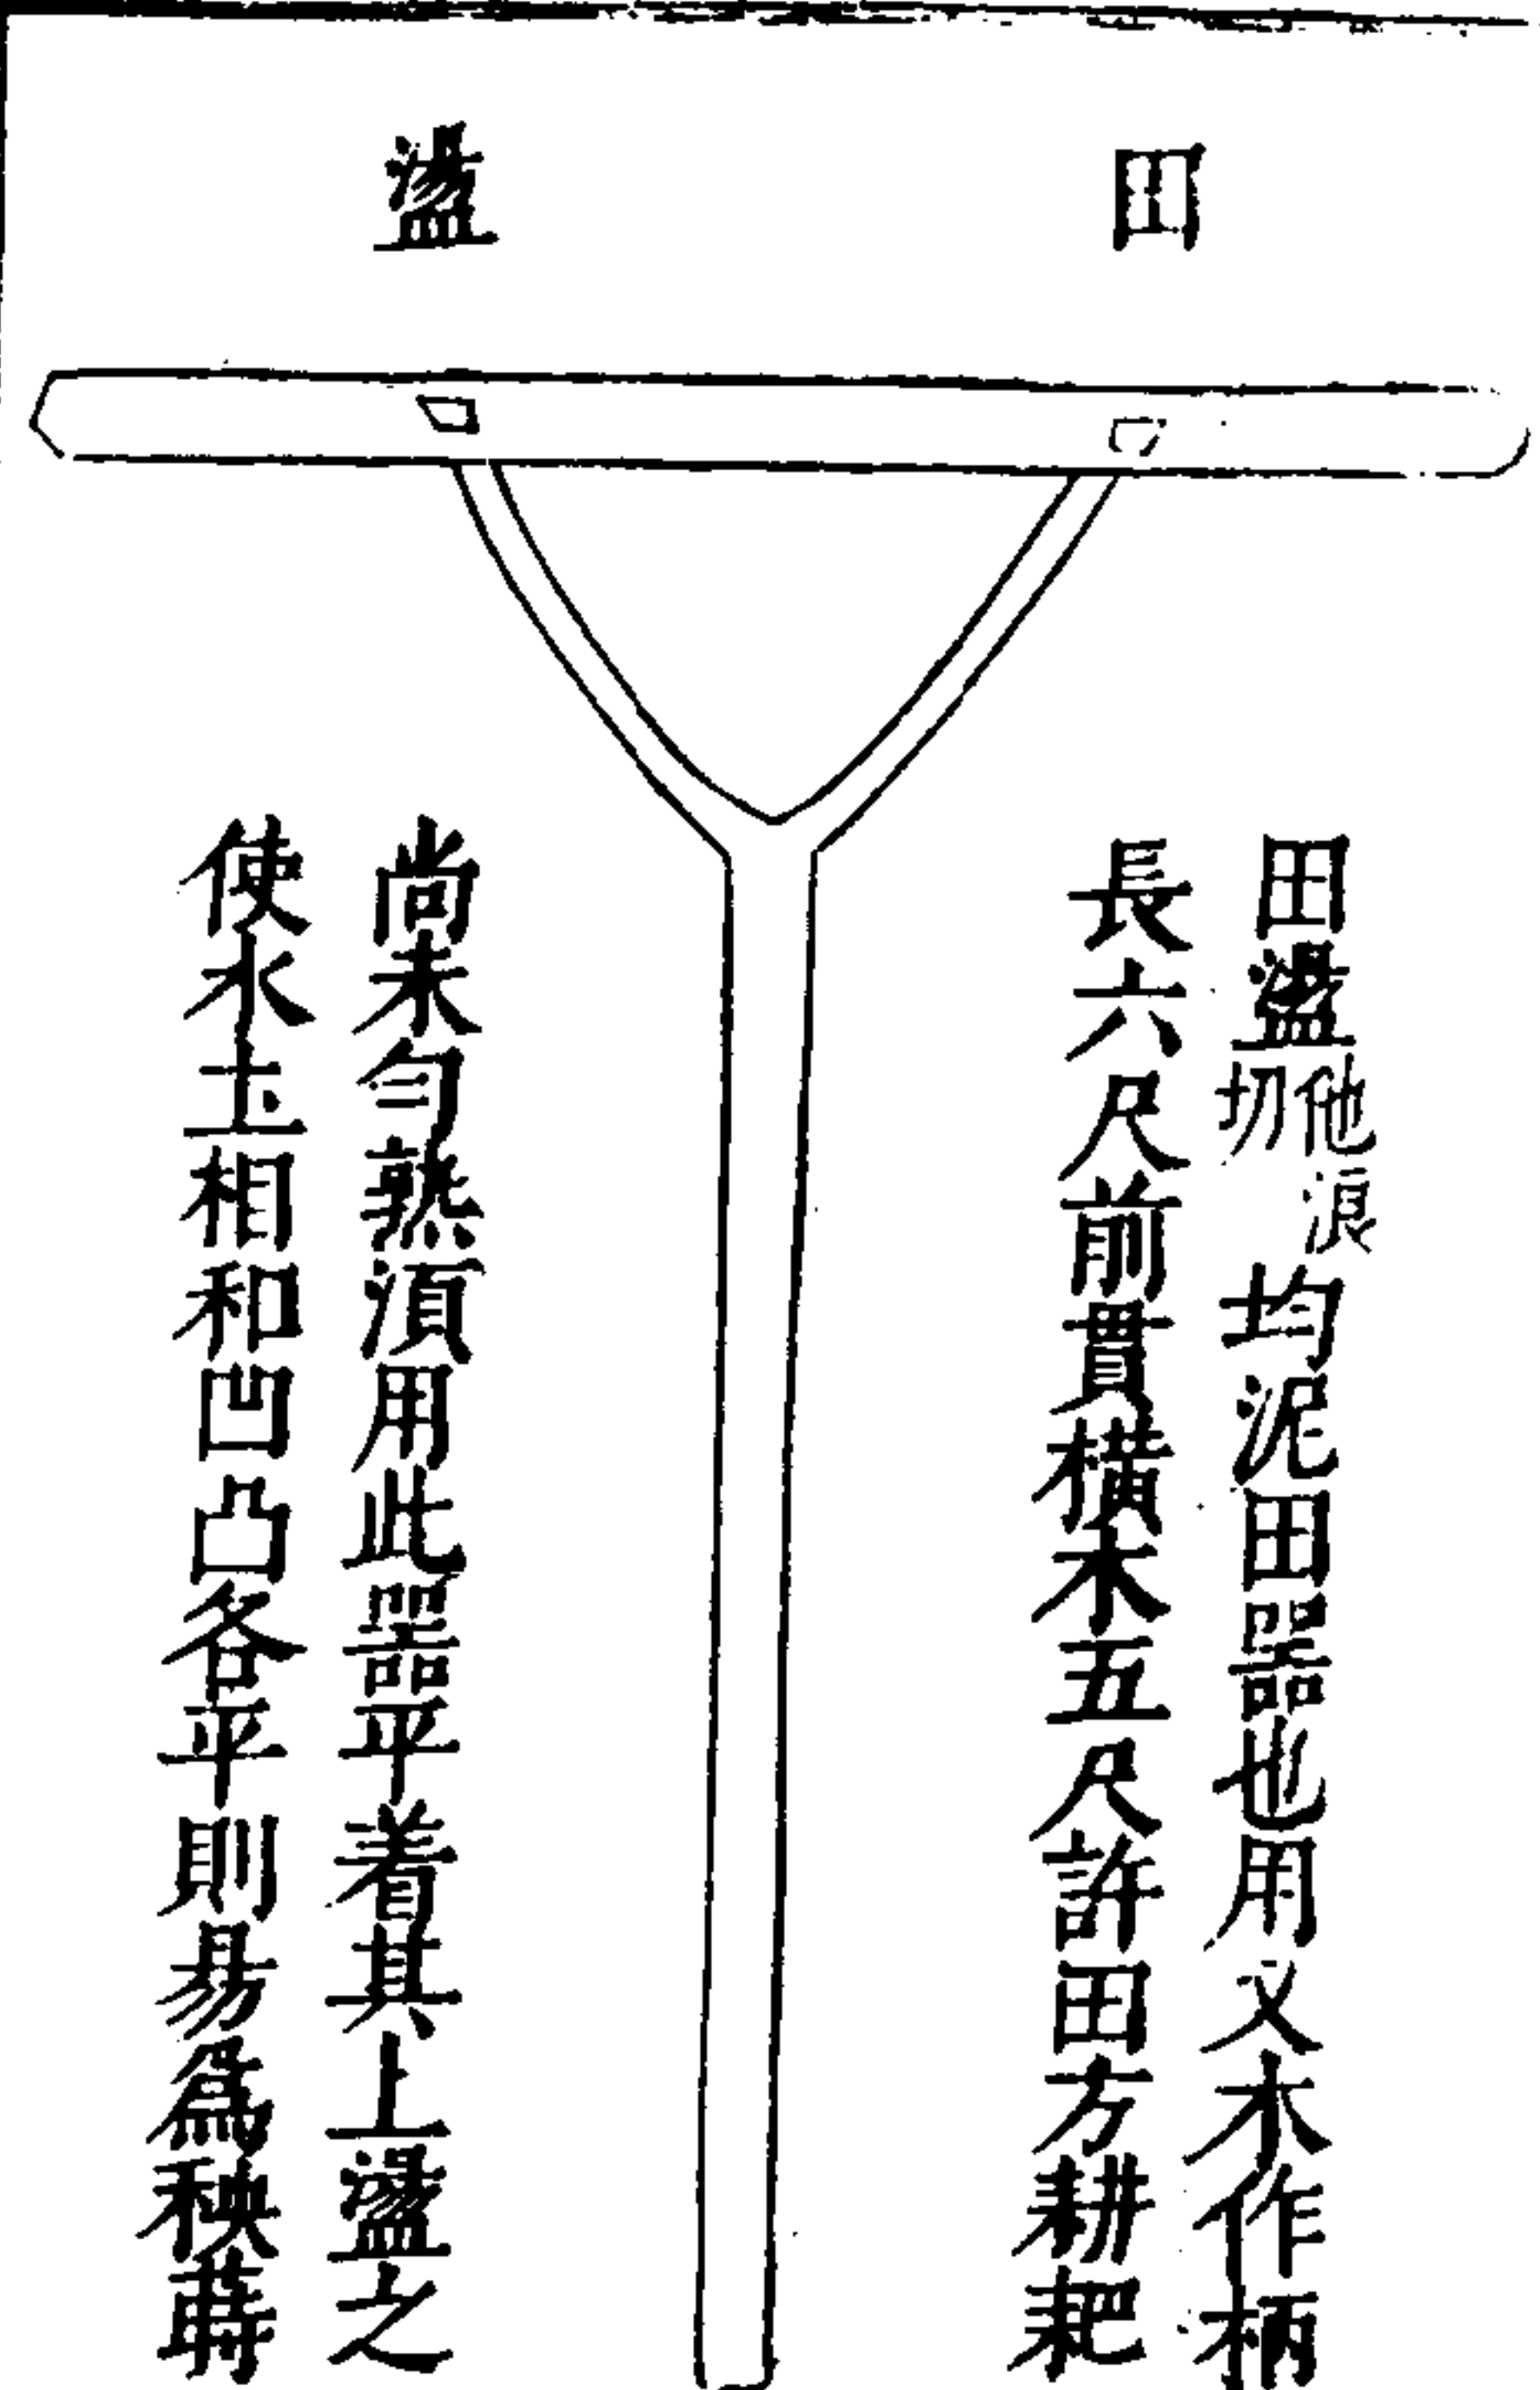 田盪
田盪他浪切均泥田器也用叉木作柄
長六尺前貫橫木五尺許田方耕耙
尚未勻熟須用此器平着其上盪之
使水土相和凹凸各平則易爲秧蒔